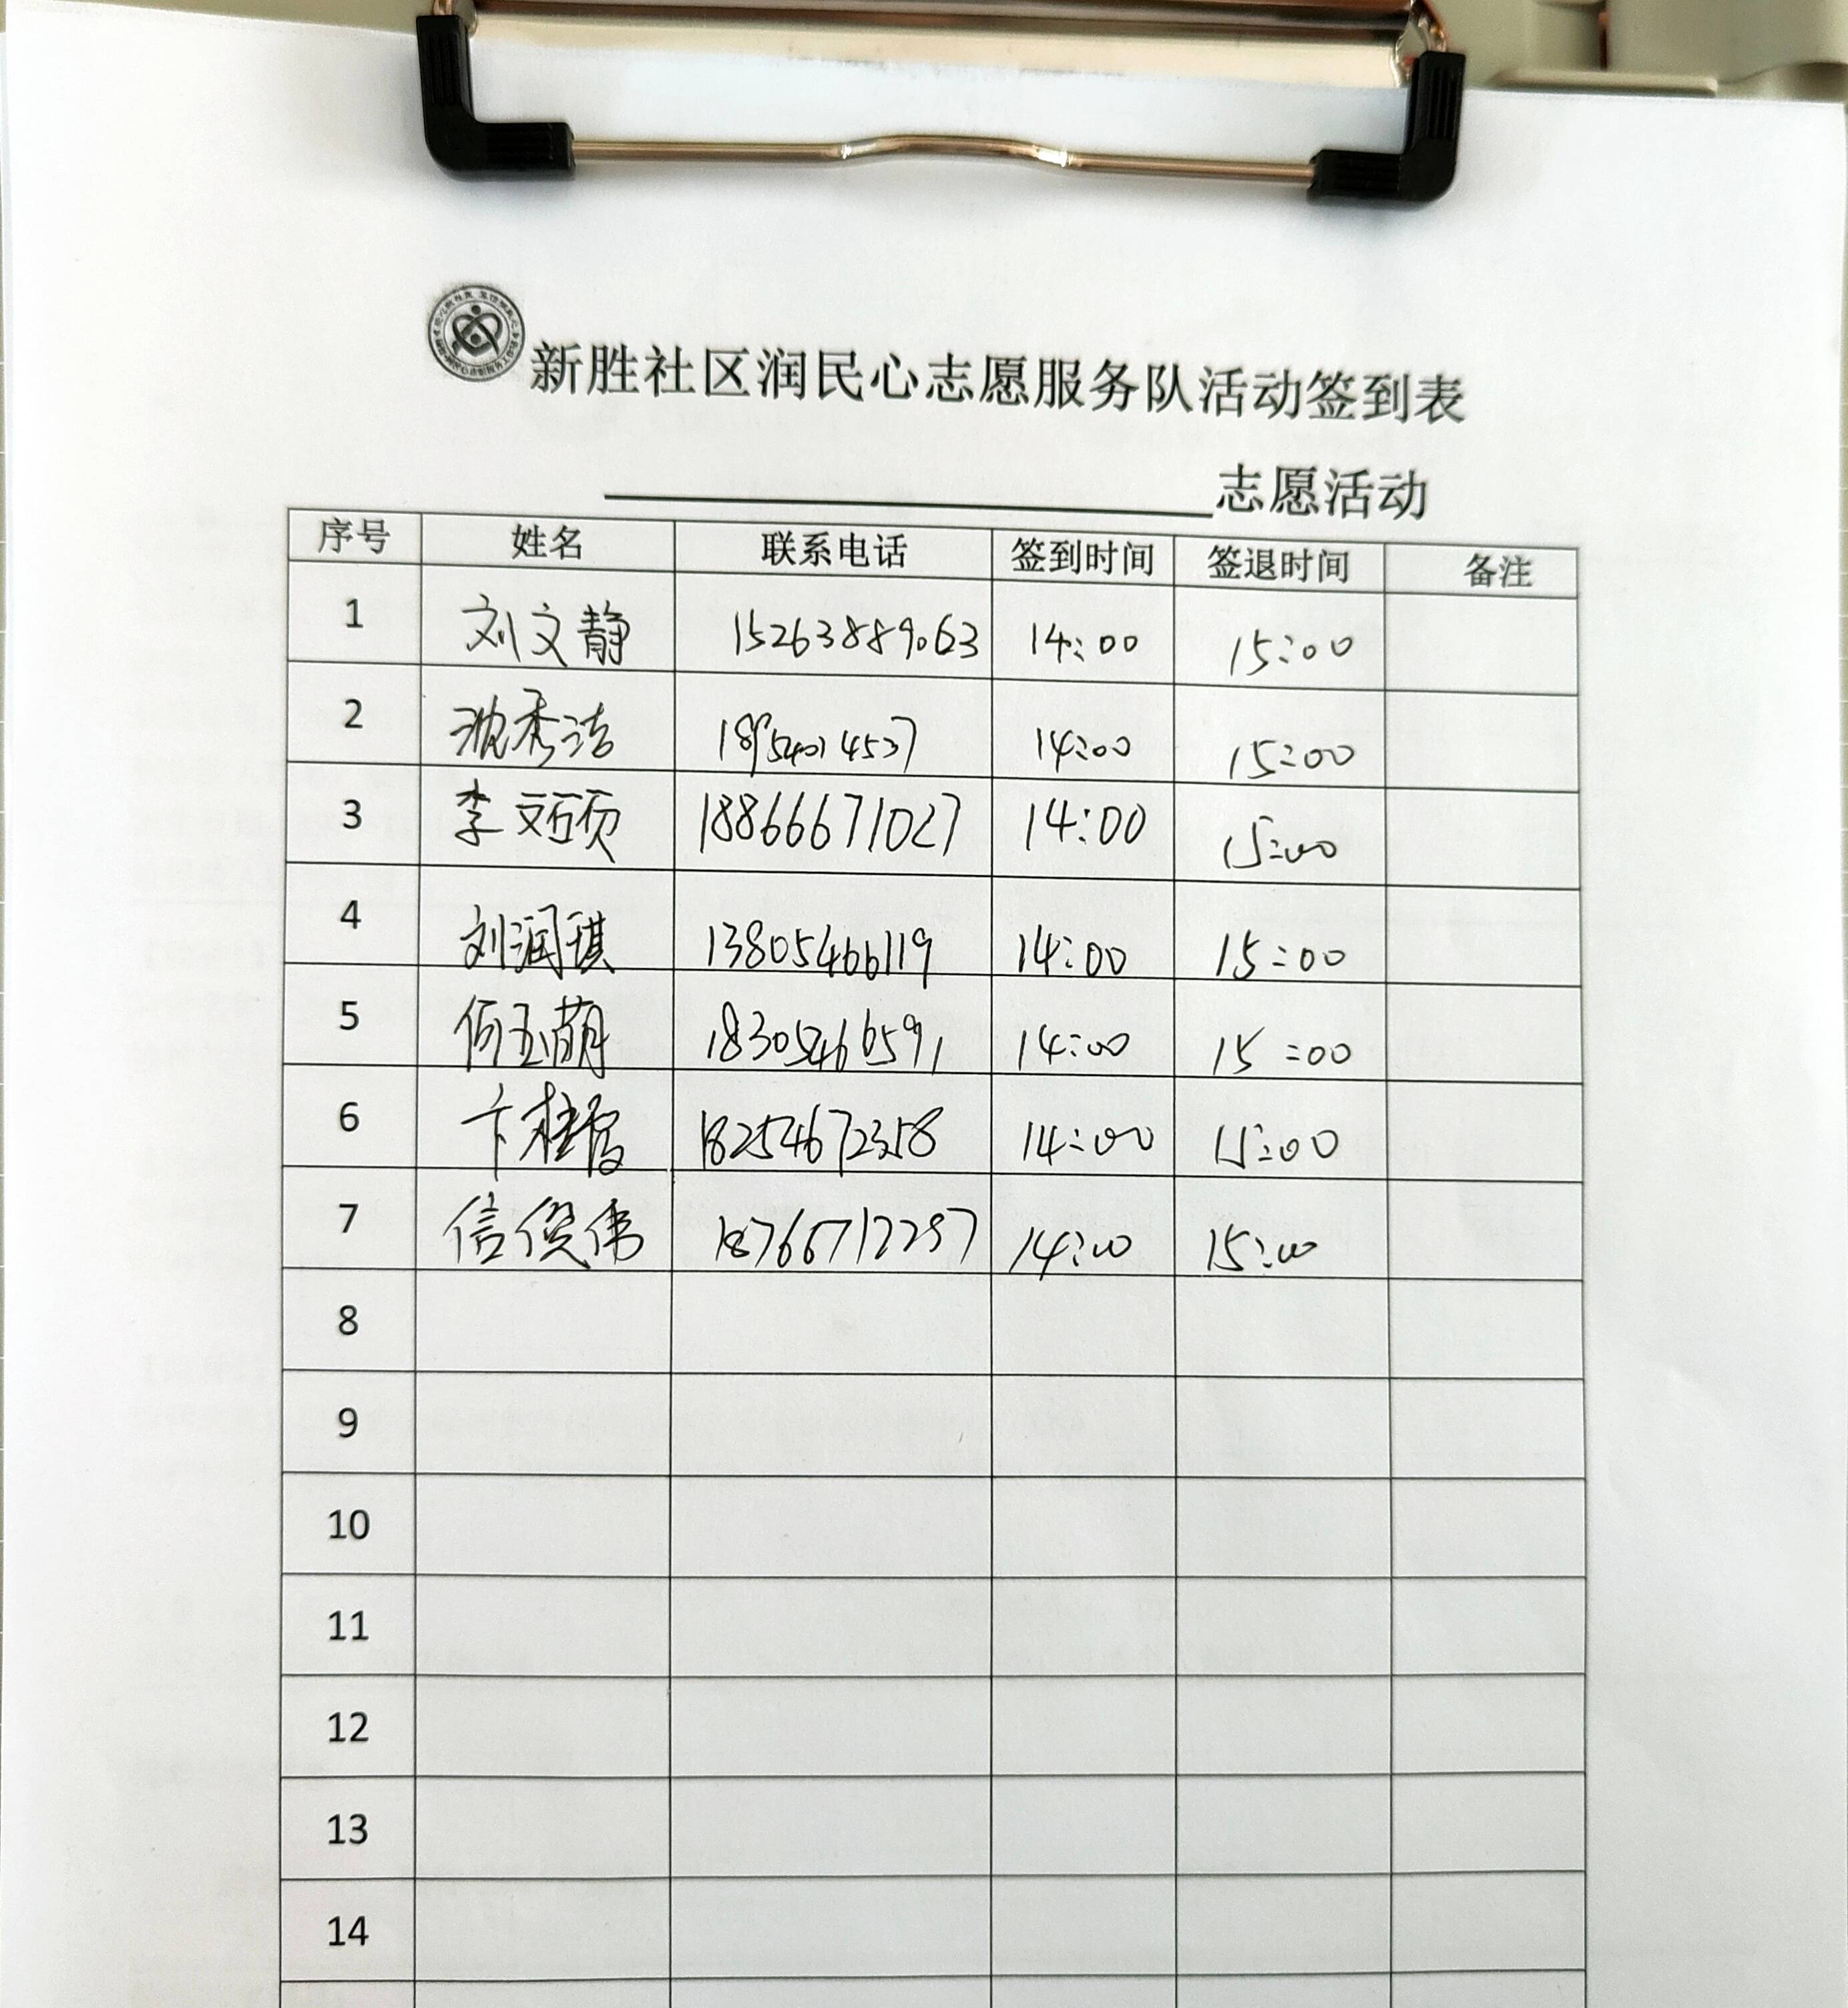 新胜社区润民心志愿服务队活动签到表
志愿活动
序号 姓名 联系电话 签到时间 签退时间 备注
1 刘文静 15263889063 14:00 15:00
2 沈秀洁 14:00 15:00
3 李 18866671027 14:00 15:00
4 刘润琪 13805466119 14:00 15:00
5 何玉萌 18305466591 14:00 15:00
6 卞桂霞 18254672358 14:00 15:00
7 信俊伟 18766712297 14:00 15:00
8
9
10
11
12
13
14